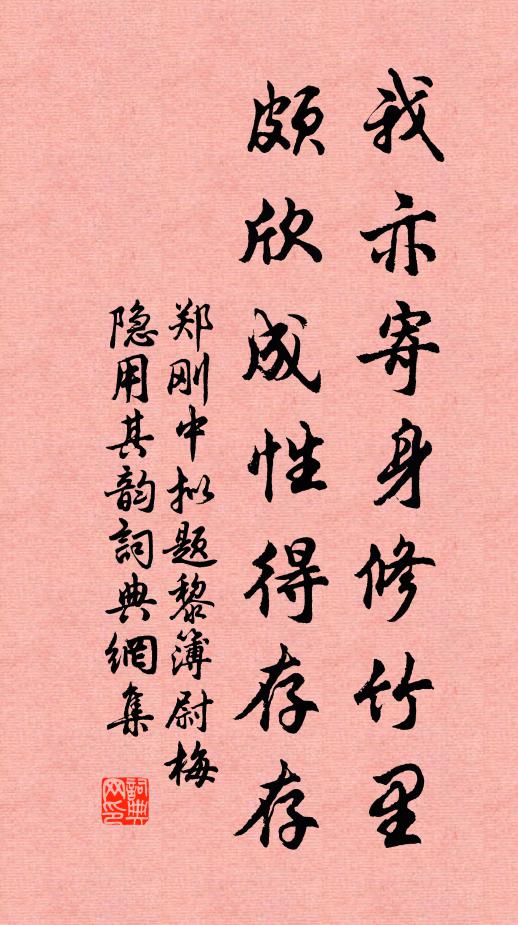 我亦寄身修竹里
颇欣成性得存存
郑刚中拟题黎簿尉梅
隐用其韵词典網集
詞典网印